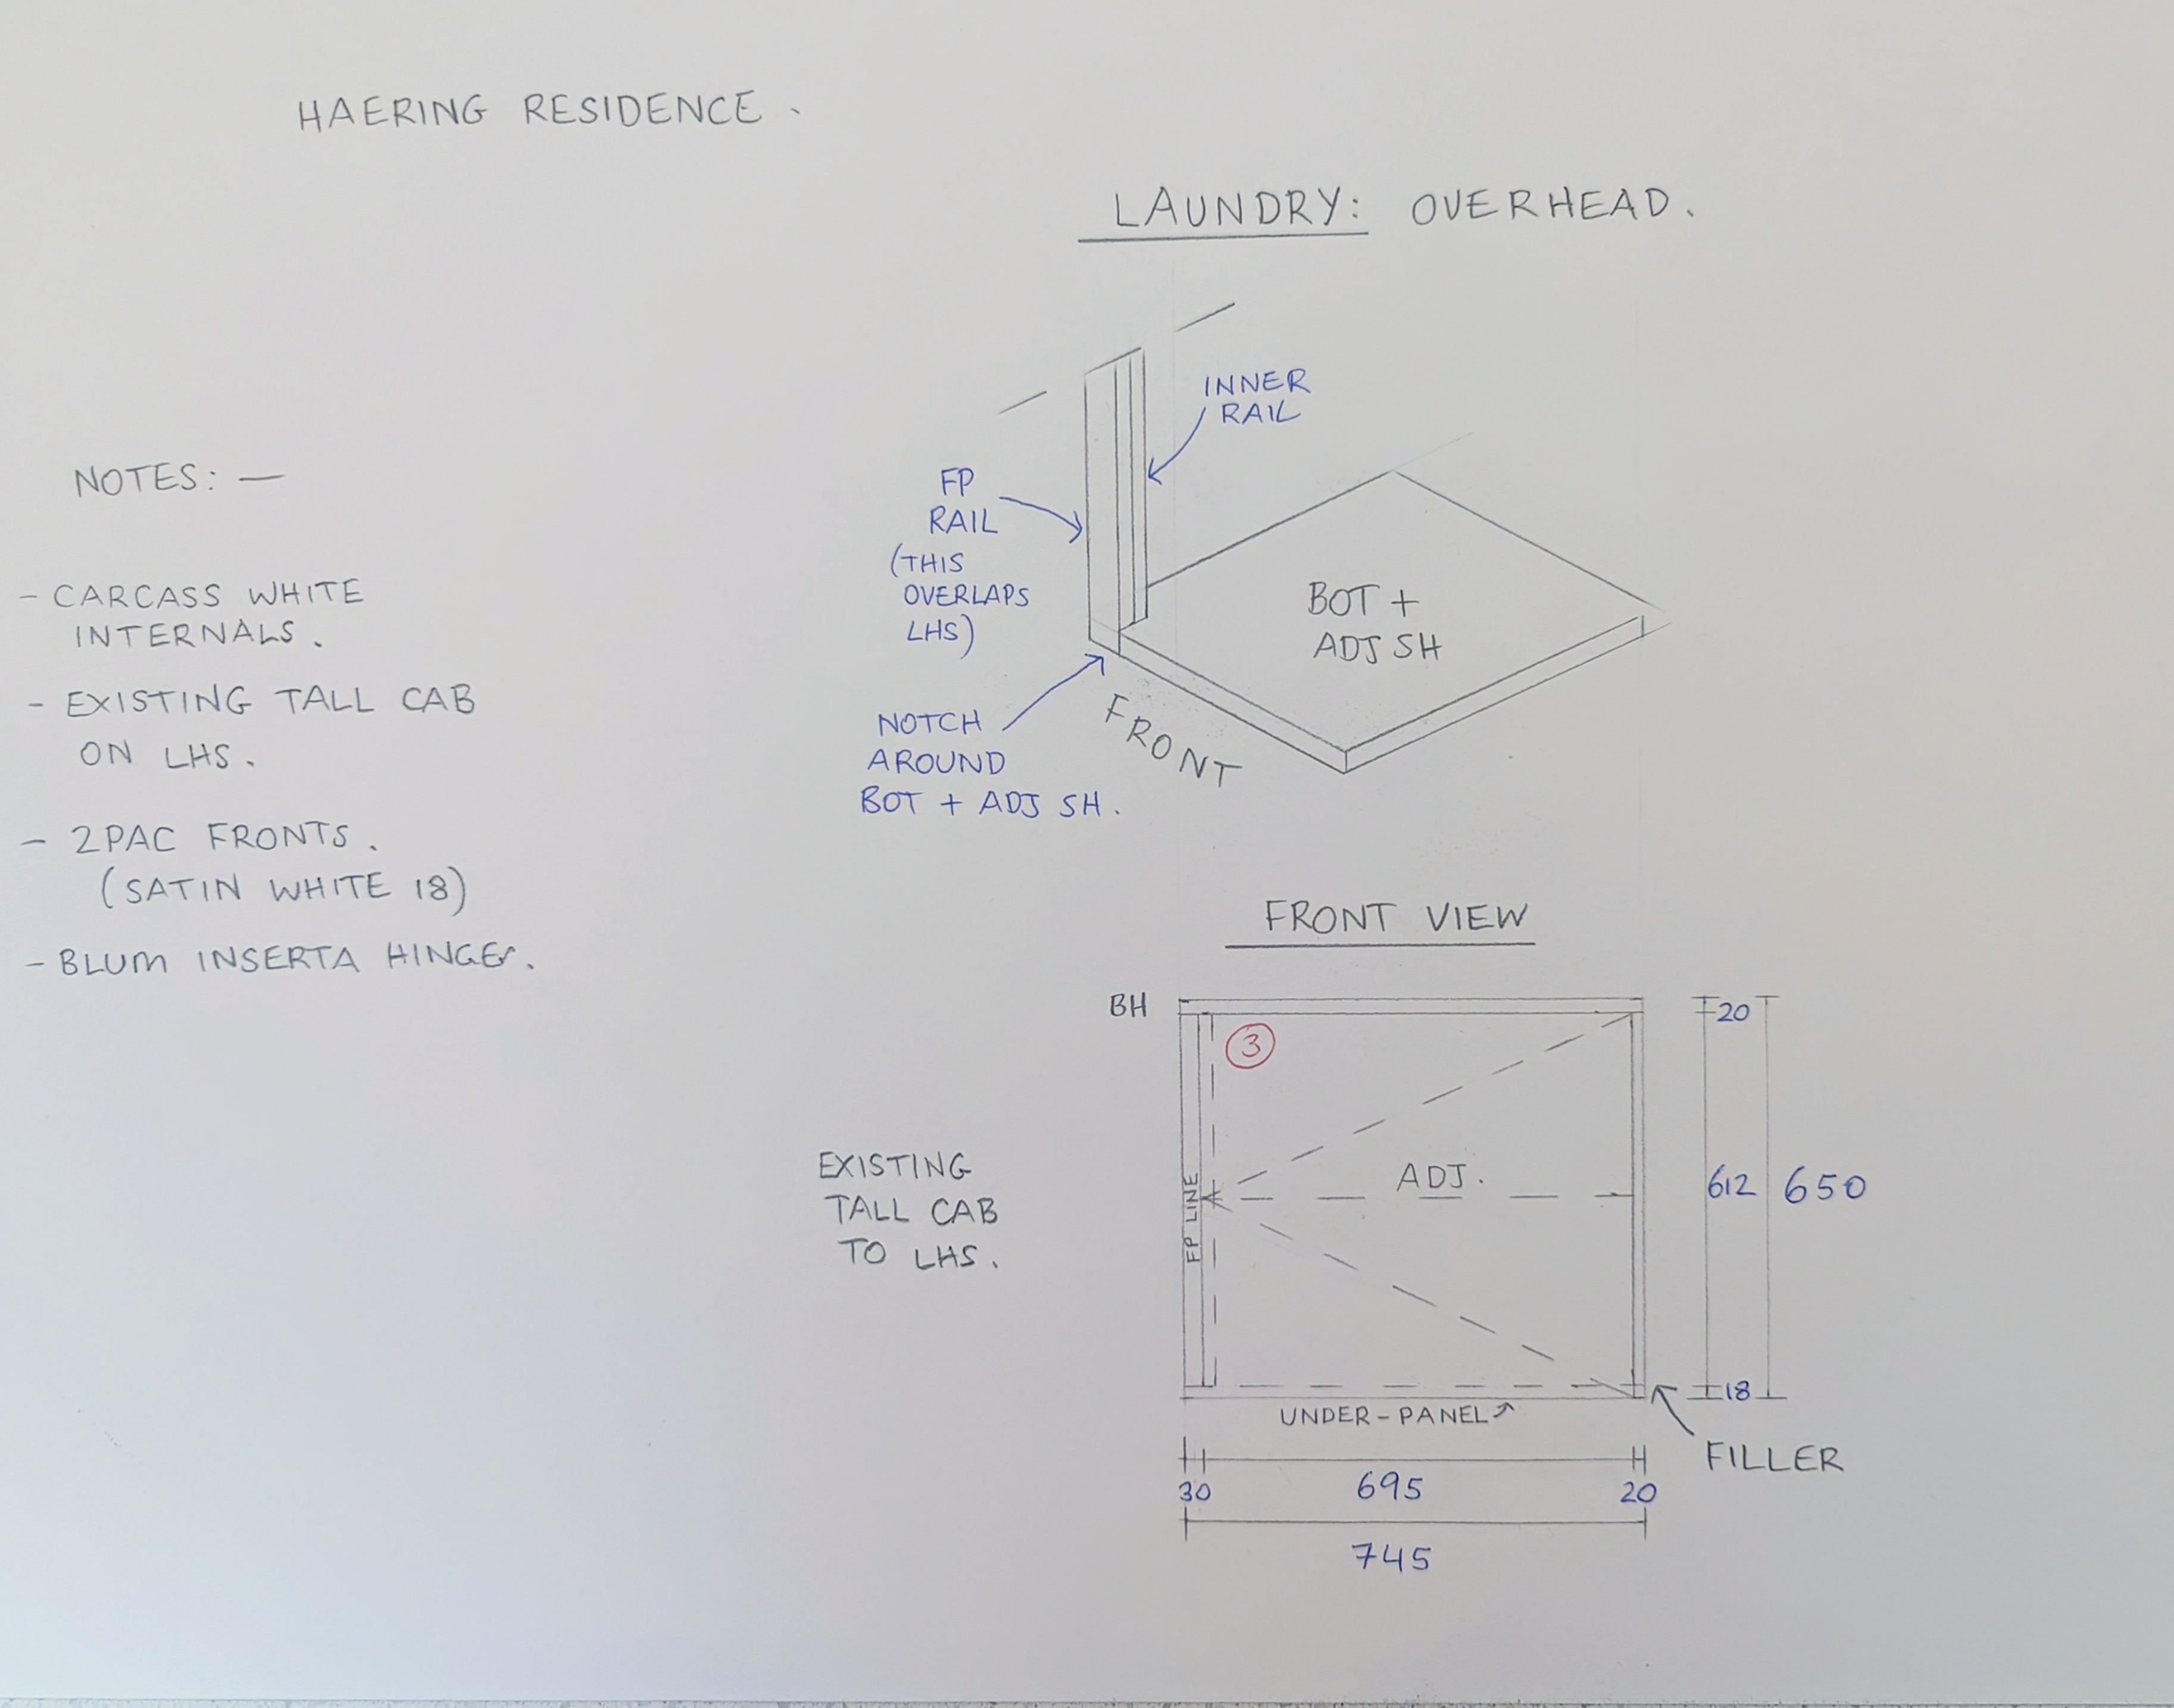 HAERING RESIDENCE.
LAUNDRY: OVERHEAD.
NOTES: —
- CARCASS WHITE
INTERNALS.
- EXISTING TALL CAB
ON LHS.
- 2PAC FRONTS.
(SATIN WHITE 18)
- BLUM INSERTA HINGES.
INNER
RAIL
FP
RAIL
(THIS
OVERLAPS
LHS)
BOT +
ADJ SH
NOTCH
AROUND
BOT + ADJ SH.
FRONT
FRONT VIEW
BH
3
20
EXISTING
TALL CAB
TO LHS.
FP LINE
ADJ.
612
650
18
UNDER-PANEL
FILLER
30
695
20
745